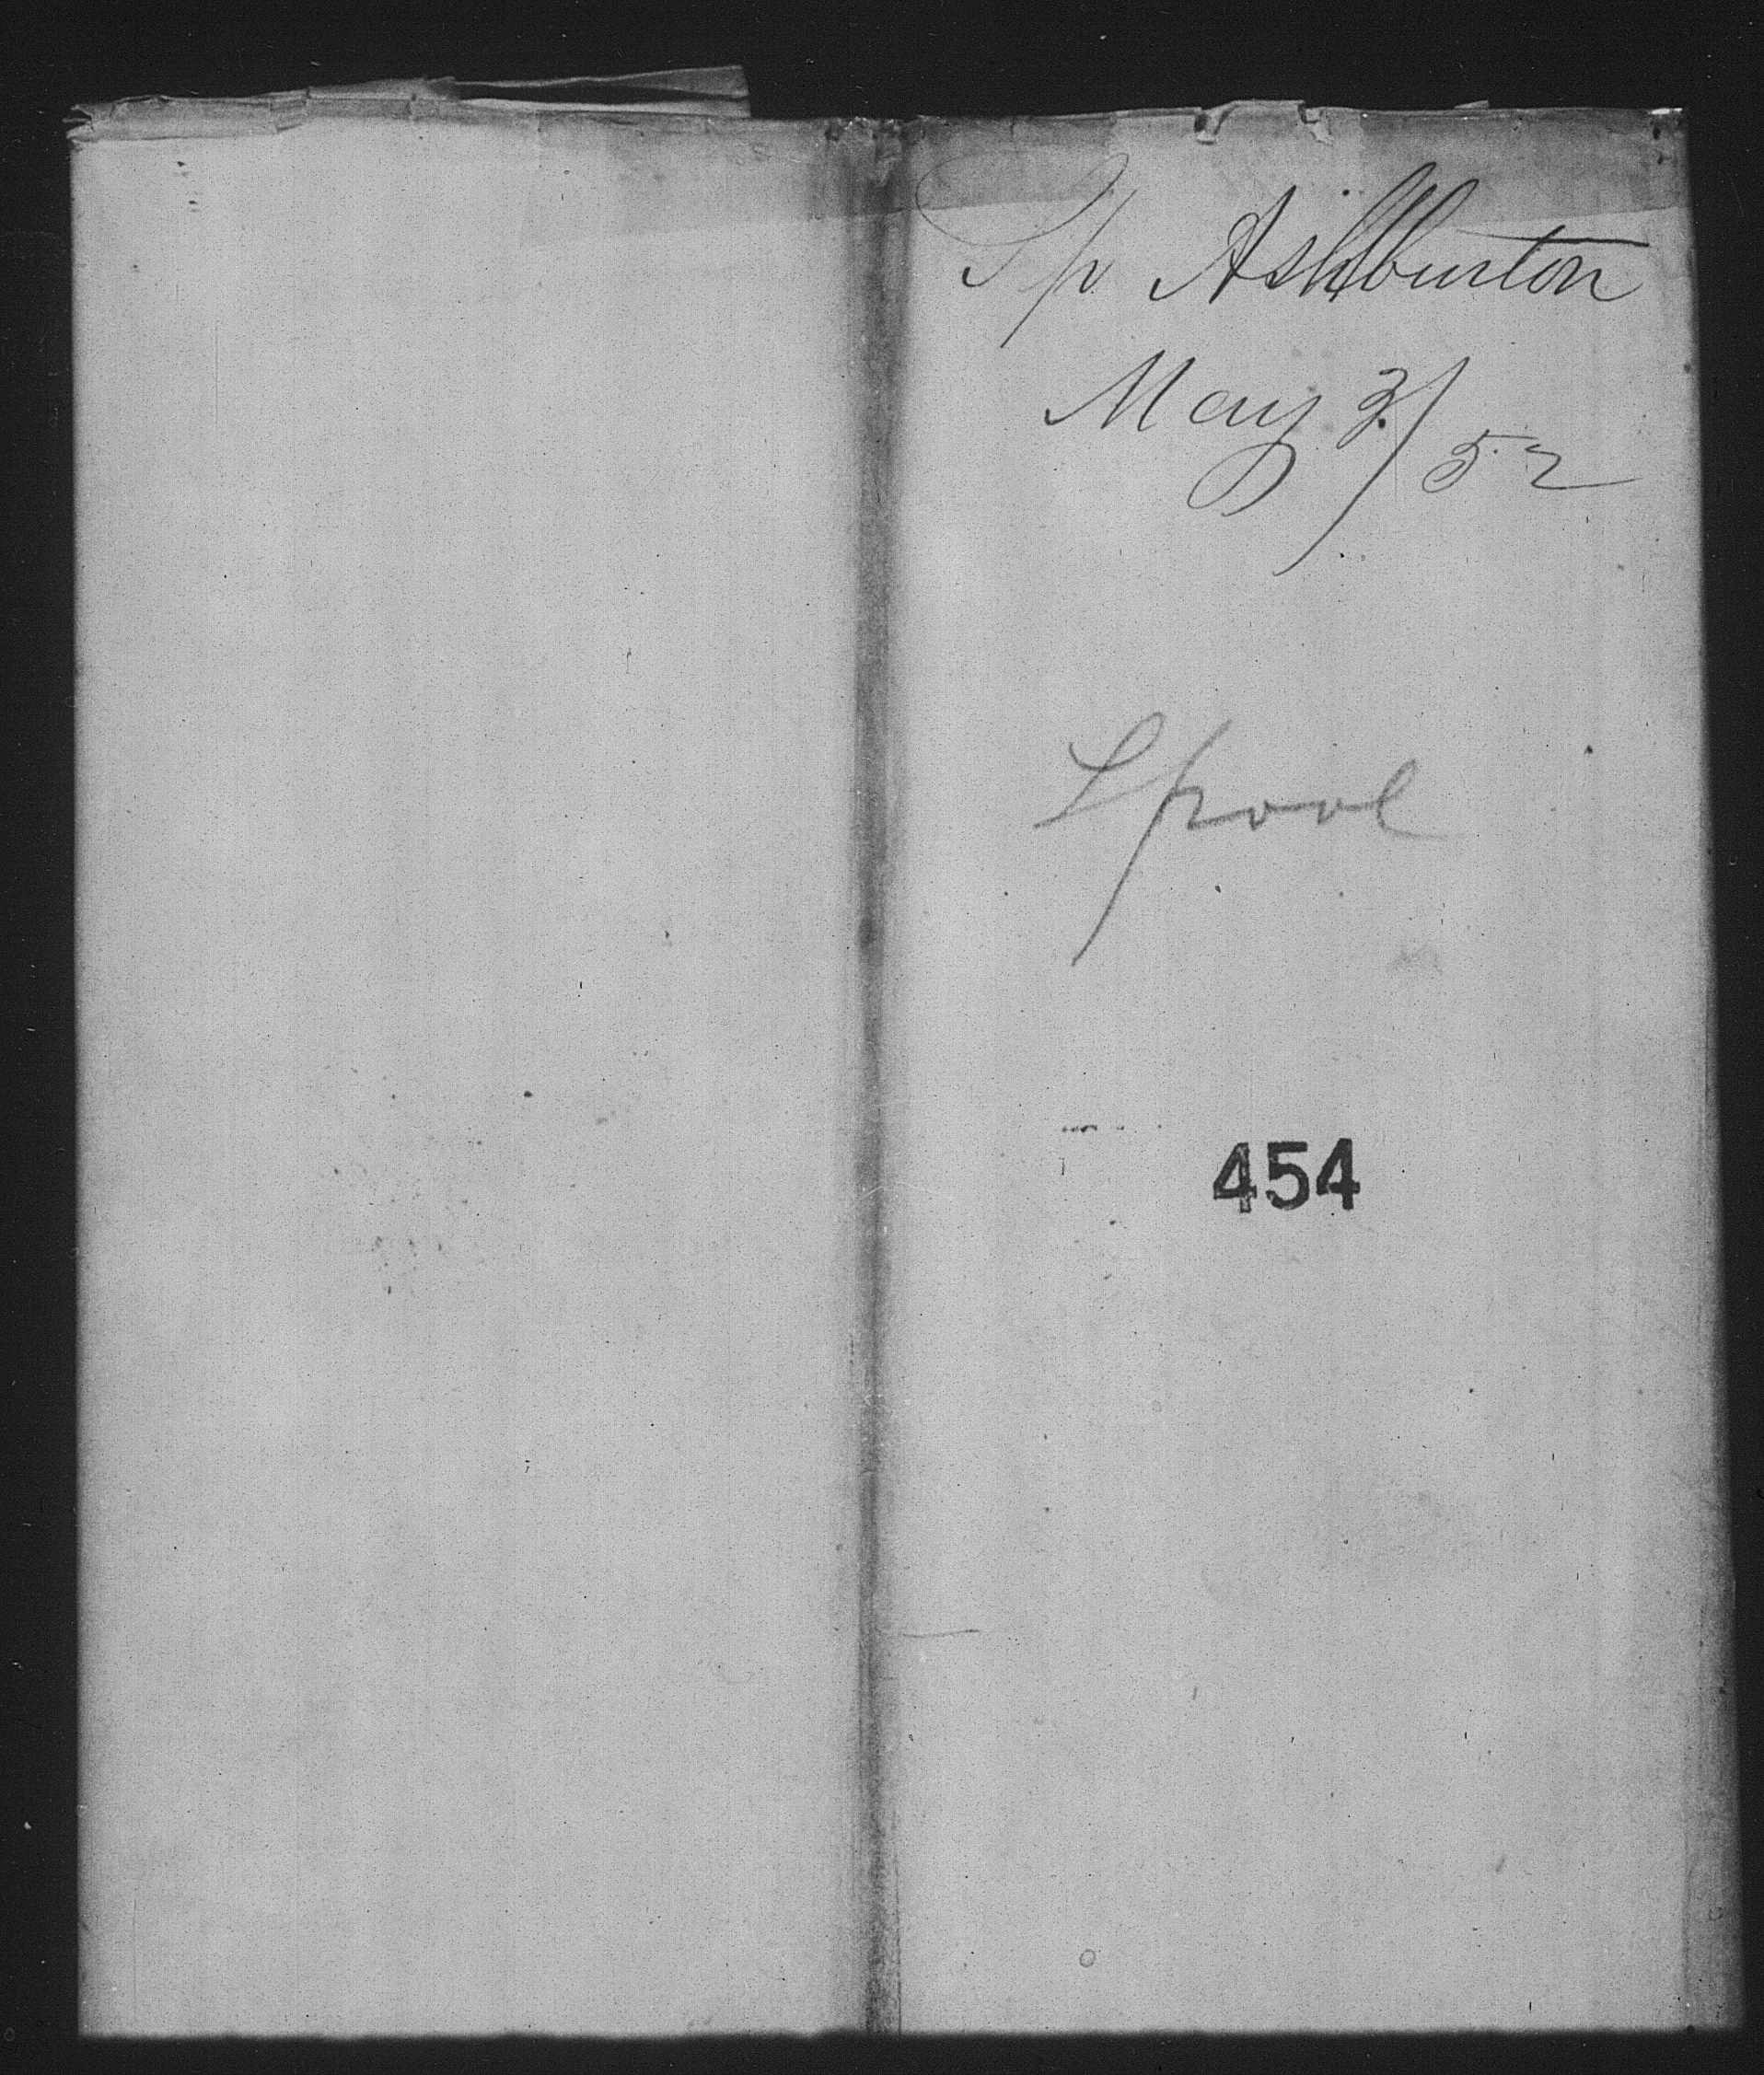 Sp Ashburton
May 3/52
Lpool
454